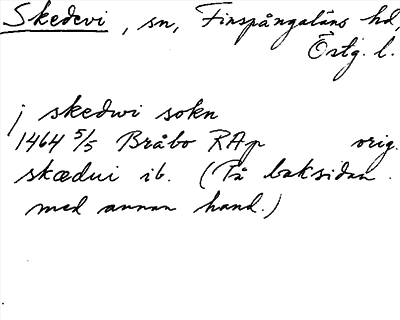 Skedevi, sn, Finspångaläns hd,
Östg. l.
j skedwi sokn
1464 5/5 Bråbo RAp orig.
skædui ib. (På baksidan
med annan hand.)